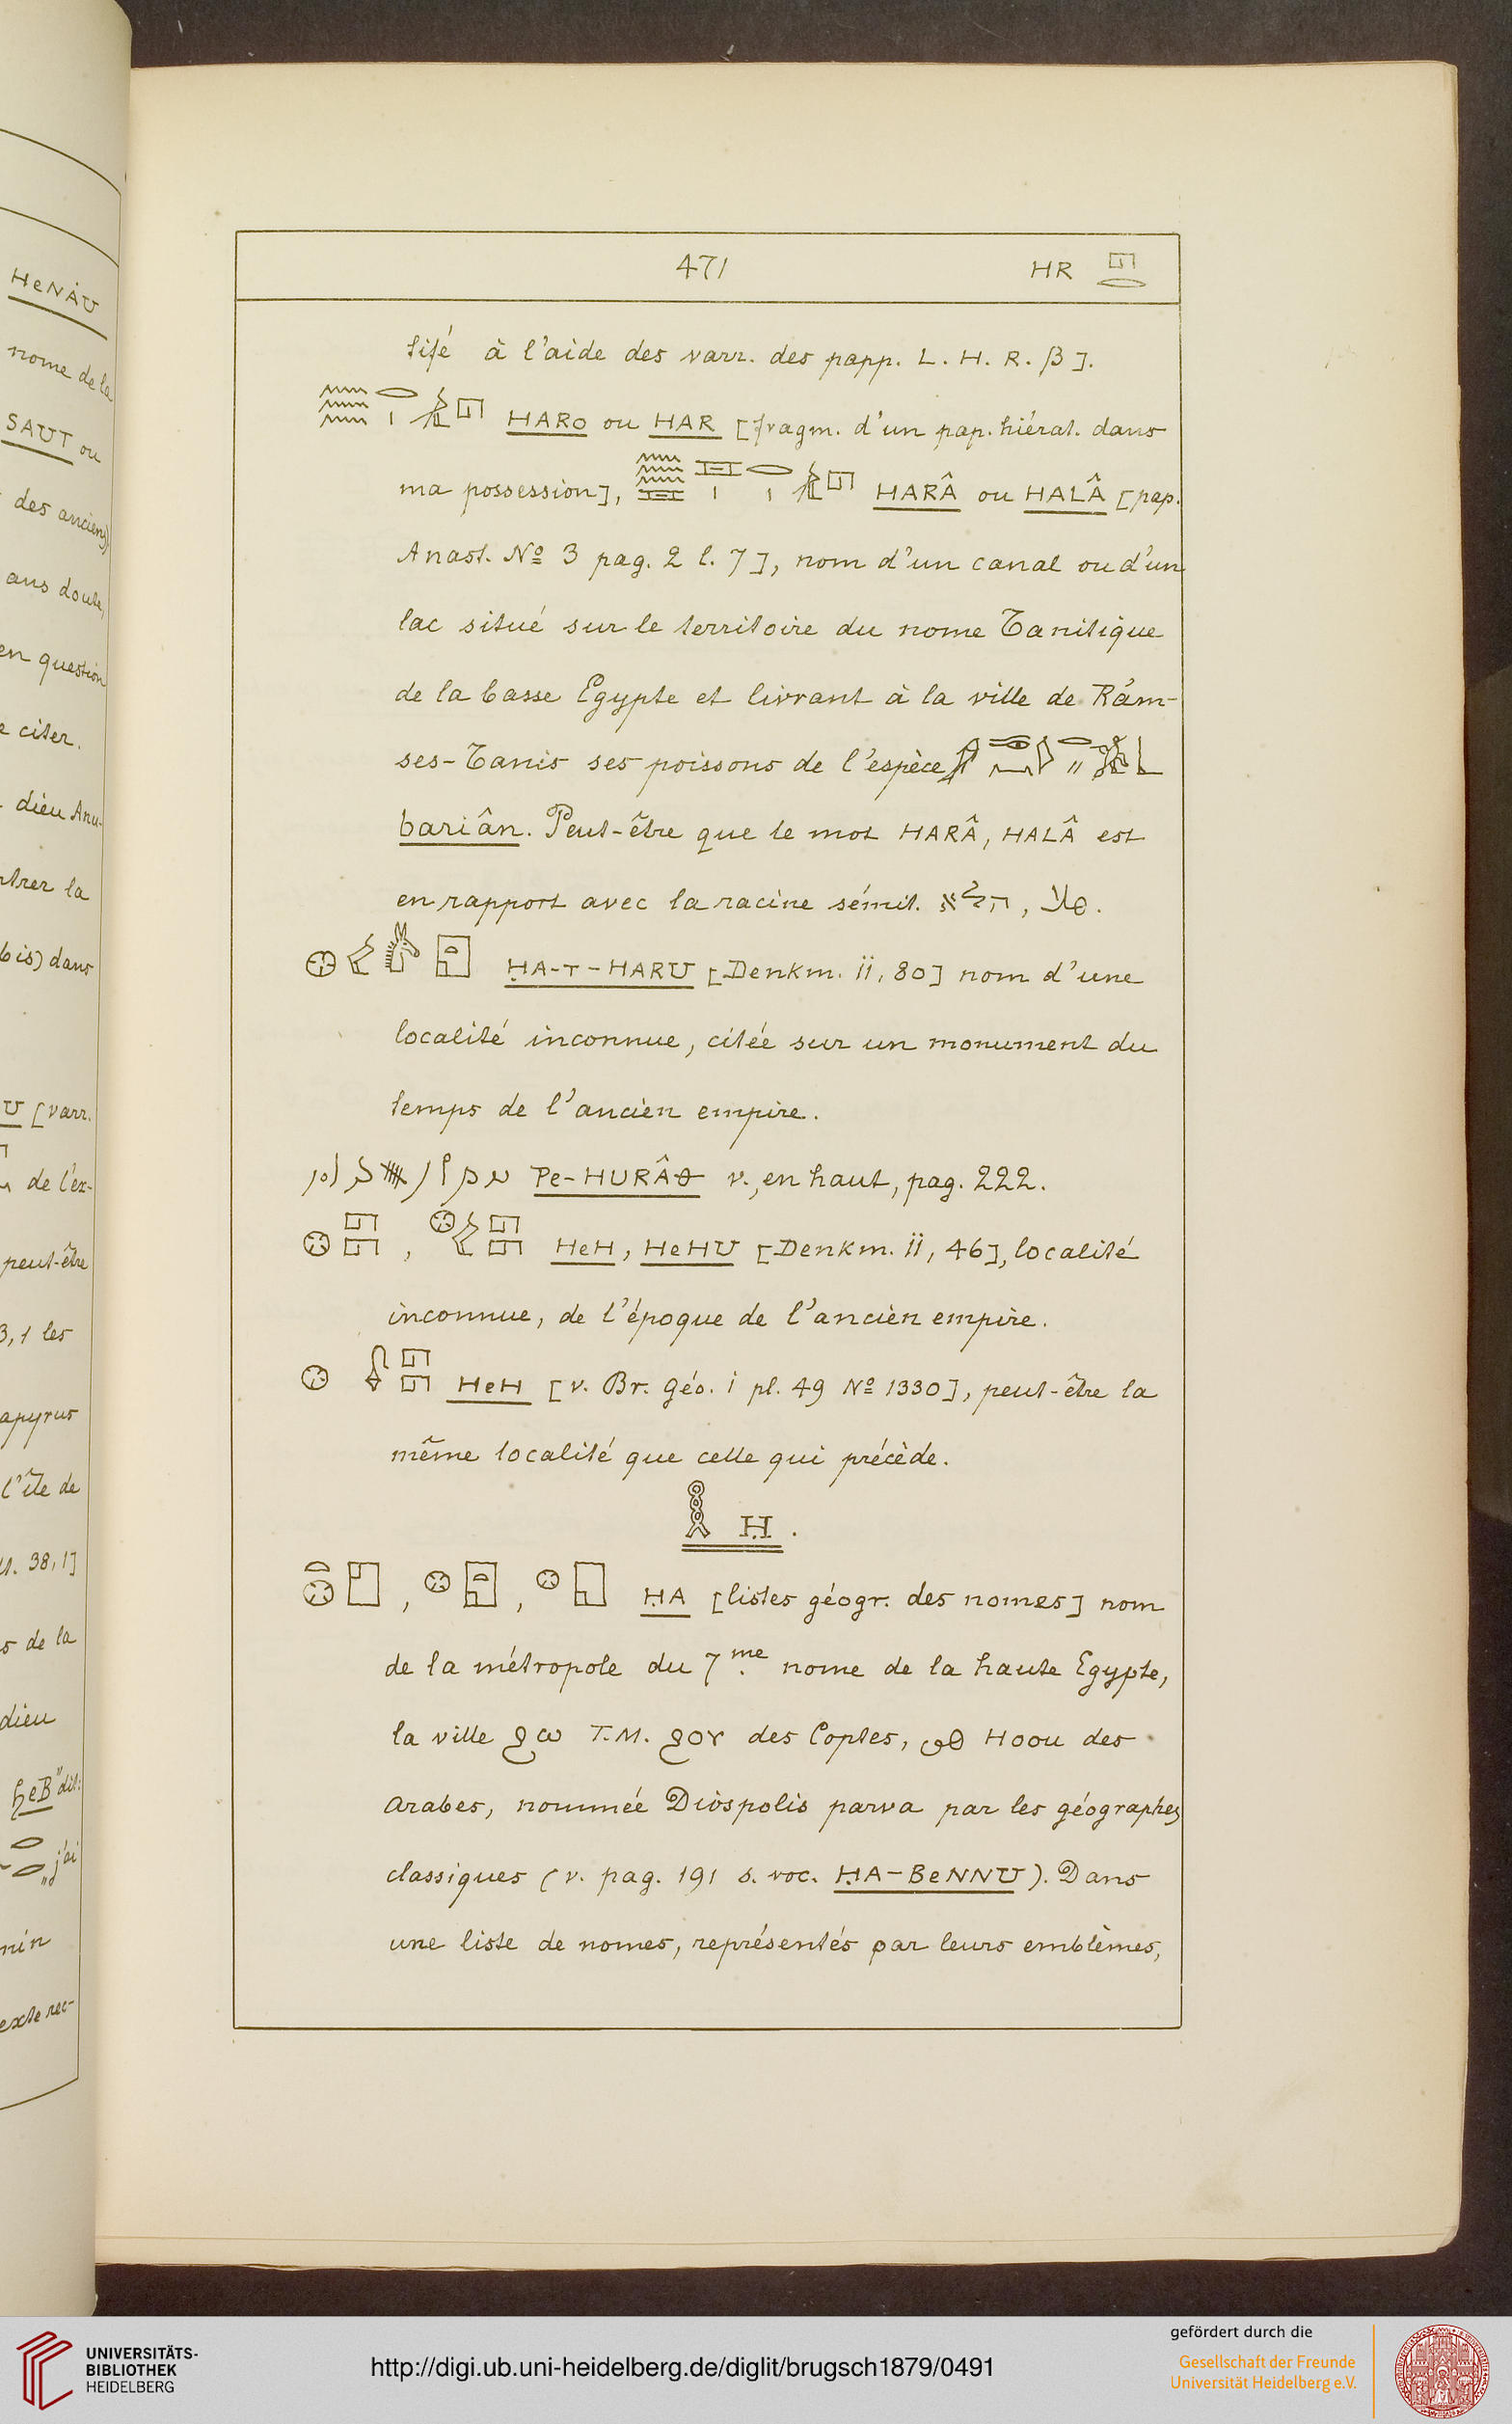 HeNÀU
nome de la
SAUT ou
des anciens)
ans doute,
en question
citer.
dieu Anu-
trer la
bis) dans
U [varr.
de l'ex-
peut-être
3,1 les
apyrus
l'île de
38,1]
s de la
dieu
ḥeB" dit:
"j'ai
min
exte rec-
471 HR
tifé à l'aide des varr. des papp. L. H. R. β].
HARo ou HAR [fragm. d'un pap. hiérat. dans
ma possession], HARÂ ou HALÂ [pap.
Anast. Nº 3 pag. 2 l. 7], nom d'un canal ou d'un
lac situé sur le territoire du nome Tanitique
de la basse Egypte et livrant à la ville de Râm-
ses-Tanis ses poissons de l'espèce
bariân. Peut-être que le mot HARÂ, HALÂ est
en rapport avec la racine sémit. הלא, هلا.
ḤA-T-HARU [Denkm. ii, 80] nom d'une
localité inconnue, citée sur un monument du
temps de l'ancien empire.
Pe-HURÂΘ v., en haut, pag. 222.
, HeH, HeHU [Denkm. ii, 46], localité
inconnue, de l'époque de l'ancien empire.
HeH [v. Br. Géo. i pl. 49 Nº 1330], peut-être la
même localité que celle qui précède.
Ḥ.
, , ḤA [listes géogr. des nomes] nom
de la métropole du 7me nome de la haute Egypte,
la ville ϩω T.M. ϩоⲩ des Coptes, هو Hoou des
Arabes, nommée Diospolis parva par les géographes
classiques (v. pag. 191 s. voc. ḤA-BeNNU). Dans
une liste de nomes, représentés par leurs emblèmes,
UNIVERSITÄTS-
BIBLIOTHEK
HEIDELBERG
http://digi.ub.uni-heidelberg.de/diglit/brugsch1879/0491
gefördert durch die
Gesellschaft der Freunde
Universität Heidelberg e.V.